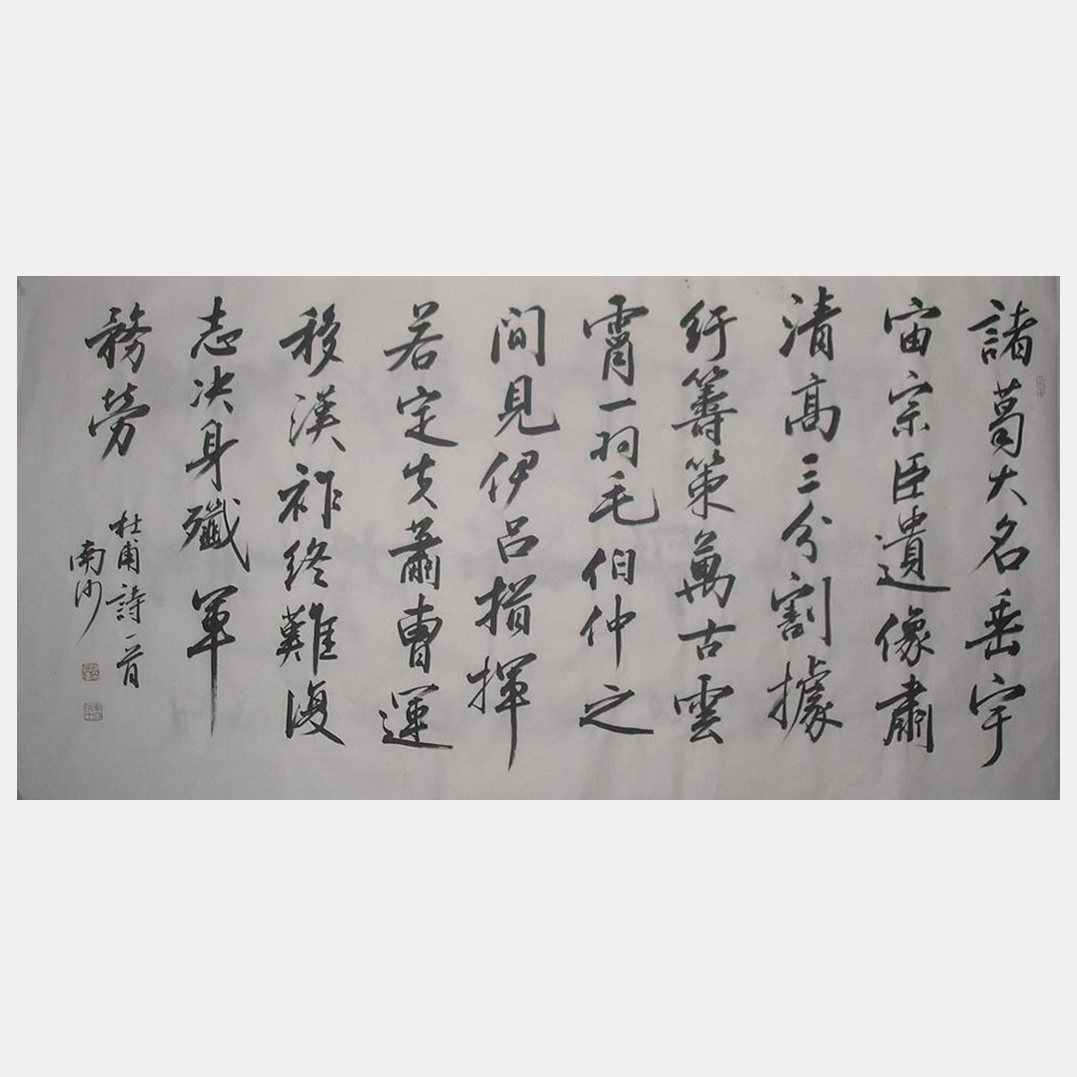 諸葛大名垂宇
宙宗臣遺像肅
清高三分割據
紆籌策萬古雲
霄一羽毛伯仲之
間見伊呂指揮
若定失蕭曹運
移漢祚終難復
志决身殲軍
務勞
杜甫詩一首
南沙